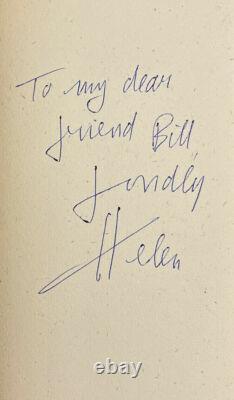 To my dear
friend Bill,
fondly
Helen
ebay